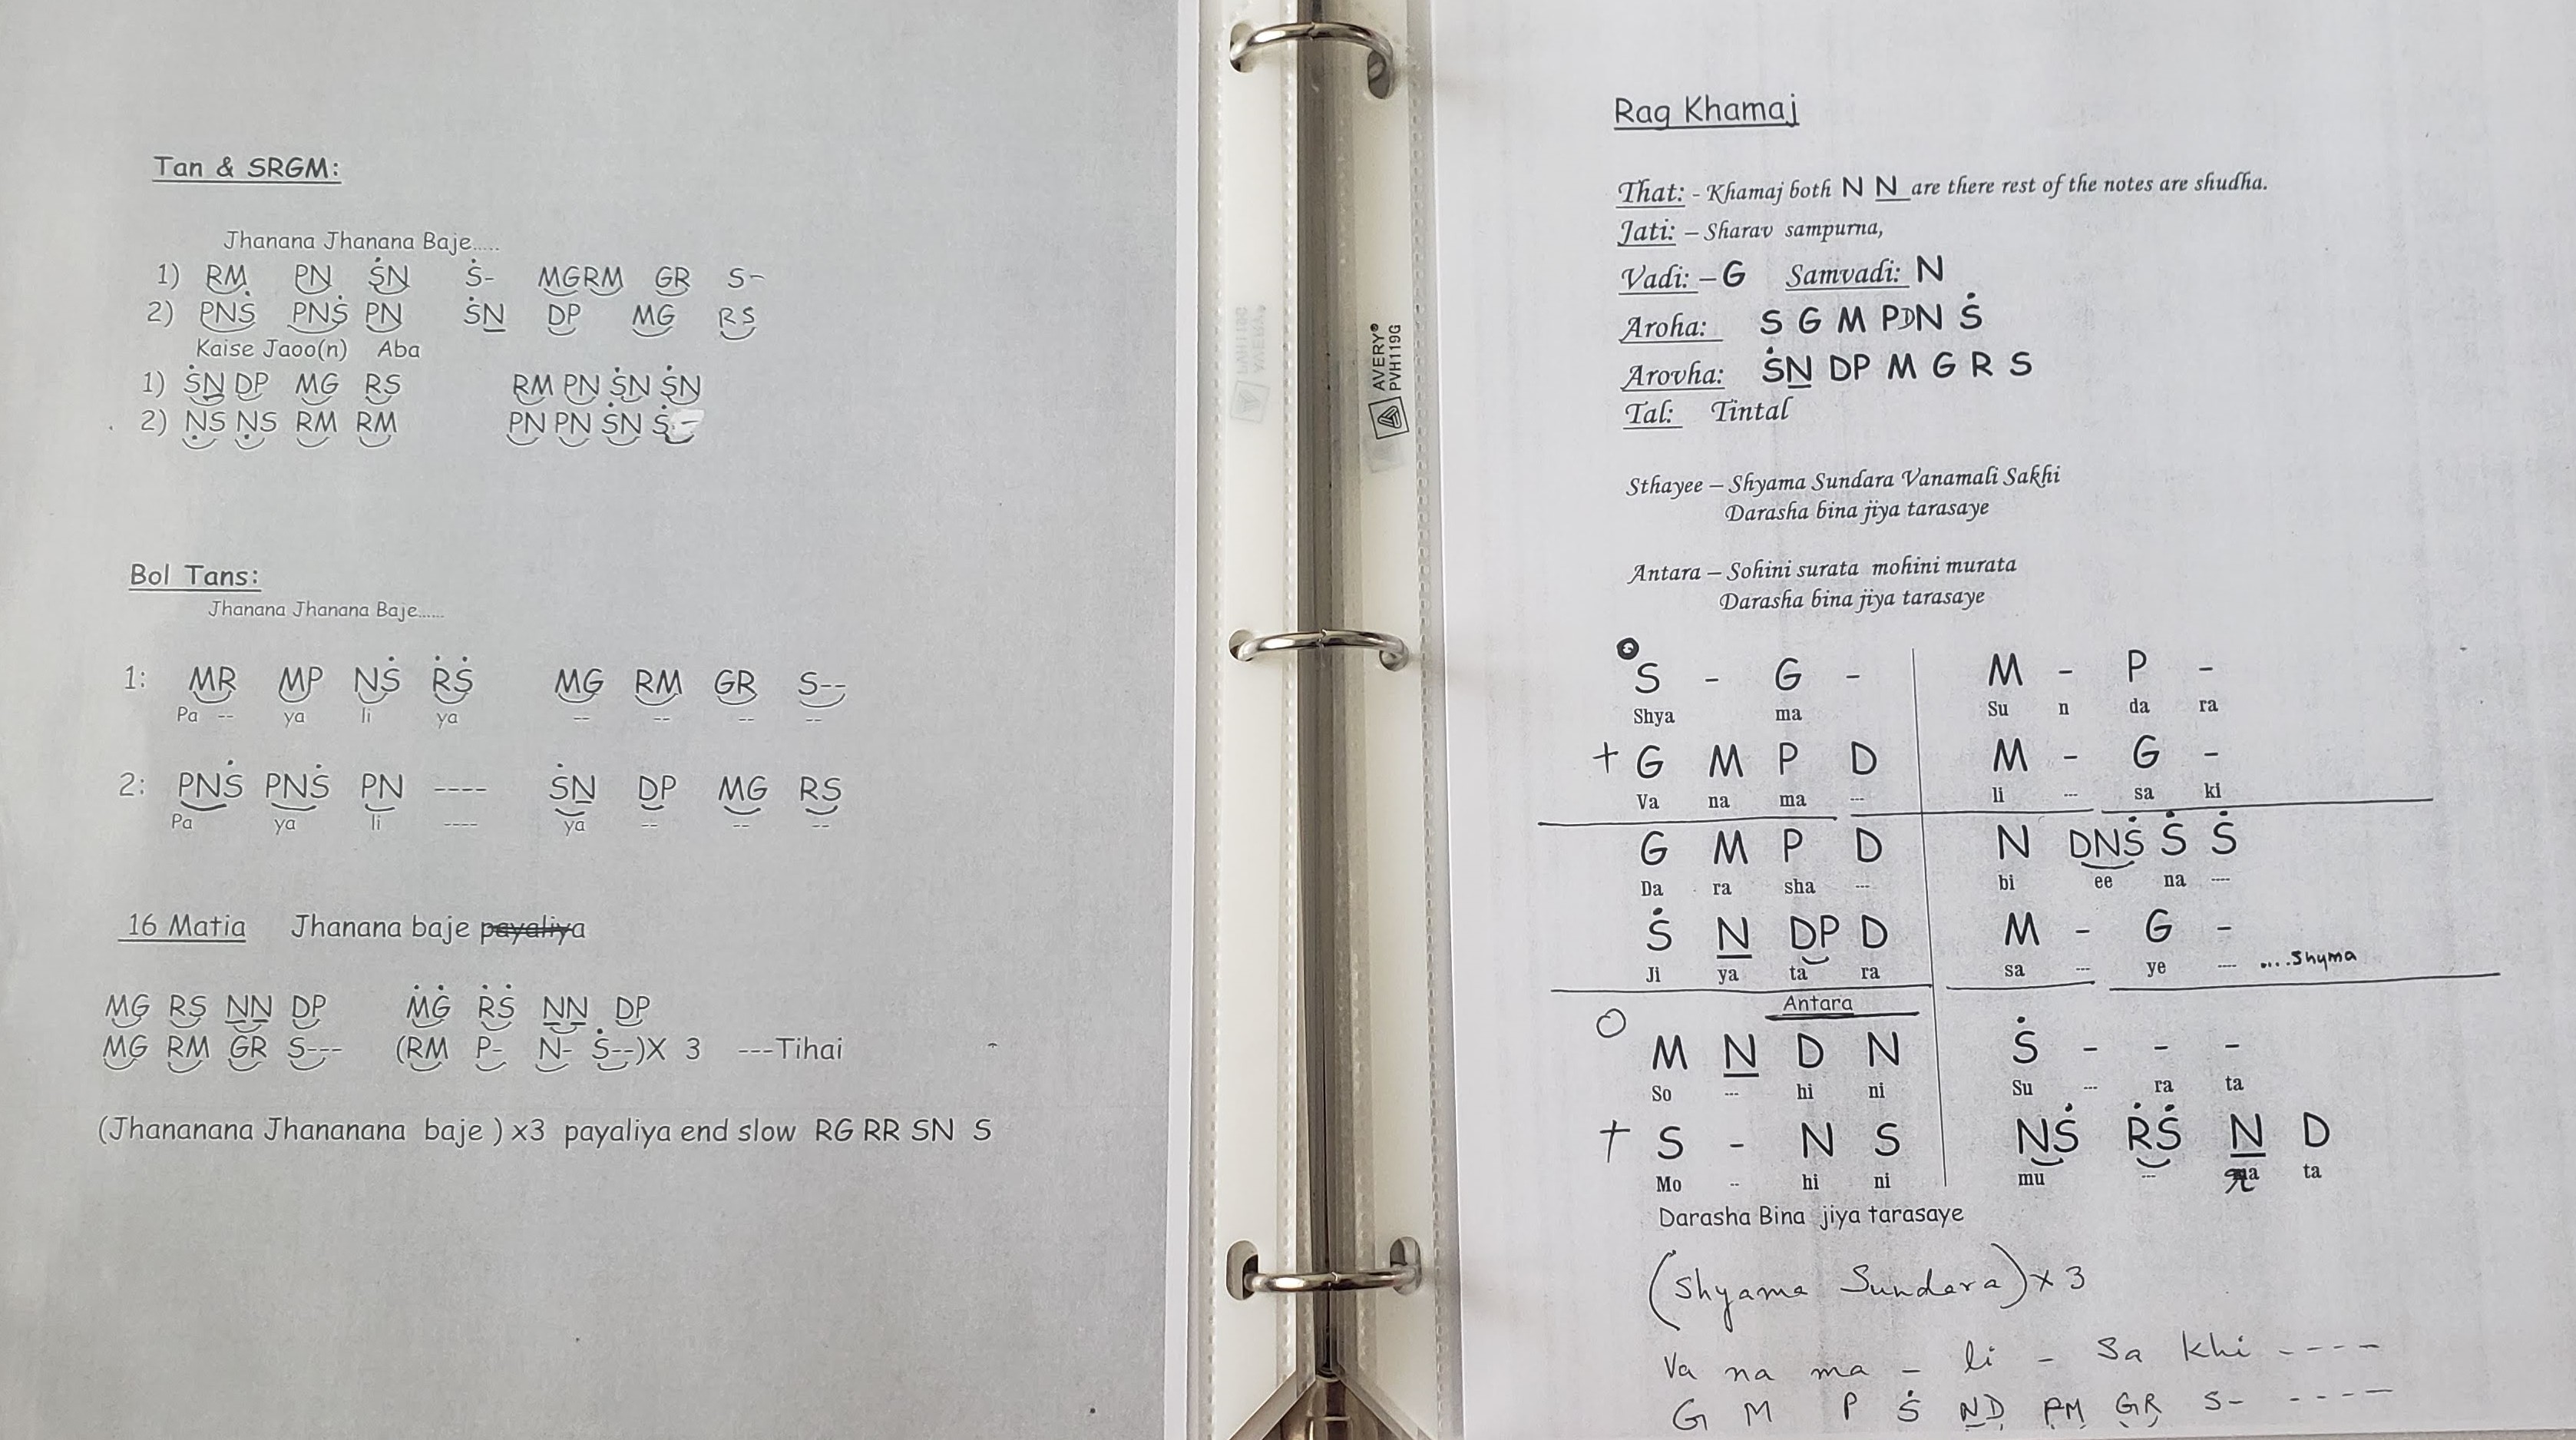 Tan & SRGM:
Jhanana Jhanana Baje.....
1) RM PN ṠN Ṡ- MGRM GR S-
2) PNṠ PNṠ PN ṠN̲ DP MG RS
Kaise Jaoo(n) Aba
1) ṠN̲ DP MG RS RM PN ṠN ṠN
2) ṆS ṆS RM RM PN PN ṠN Ṡ-
Bol Tans:
Jhanana Jhanana Baje......
1: MR MP NṠ ṘṠ MG RM GR S--
Pa -- ya li ya -- -- -- --
2: PNṠ PNṠ PN ---- ṠN̲ DP MG RS
Pa ya li ---- ya -- -- --
16 Matia Jhanana baje payaliya
MG RS N̲N̲ DP ṀĠ ṘṠ N̲N̲ DP
MG RM GR S--- (RM P- N- Ṡ--)X 3 ---Tihai
(Jhananana Jhananana baje ) x3 payaliya end slow RG RR SN S
AVERY®
PVH119G
Rag Khamaj
That: - Khamaj both N N̲ are there rest of the notes are shudha.
Jati: – Sharav sampurna,
Vadi: – G Samvadi: N
Aroha: S G M PDN Ṡ
Arovha: ṠN̲ DP M G R S
Tal: Tintal
Sthayee – Shyama Sundara Vanamali Sakhi
Darasha bina jiya tarasaye
Antara – Sohini surata mohini murata
Darasha bina jiya tarasaye
S - G - M - P -
Shya ma Su n da ra
+ G M P D M - G -
Va na ma --- li --- sa ki
G M P D N DNṠ Ṡ Ṡ
Da ra sha --- bi ee na ----
Ṡ N̲ DP D M - G -
Ji ya ta ra sa --- ye ---- ....Shyma
Antara
O M N̲ D N Ṡ - - -
So --- hi ni Su --- ra ta
+ S - N S NṠ ṘṠ N̲ D
Mo -- hi ni mu --- ra ta
Darasha Bina jiya tarasaye
(Shyama Sundara) x 3
Va na ma - li - Sa khi ----
G M P Ṡ N̲D PM GR S- ----